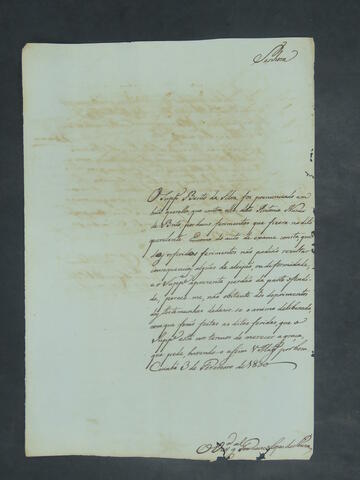 Senhora
O Supp.e Bento da Silva foi pronunciado em
huã querella que contra elle deo Antonio
de Brito, por huns ferimentos que fizera no dito
querelante. Como do auto de exame consta que
os referidos ferimentos não podião resultar
consequencia alguma de aleijão, ou disformidade,
e o Supp.e apresenta perdão da parte offendi-
da, parece me, não obstante dos depoimentos
das testemunhas deduzir-se o animo deliberado,
com que forão feitas as ditas feridas, que o
Supp.e está nos termos de merecer a graça,
que pede, havendo o assim V Mag.e por bem.
Cuiabá 3 de Fevereiro de 1830